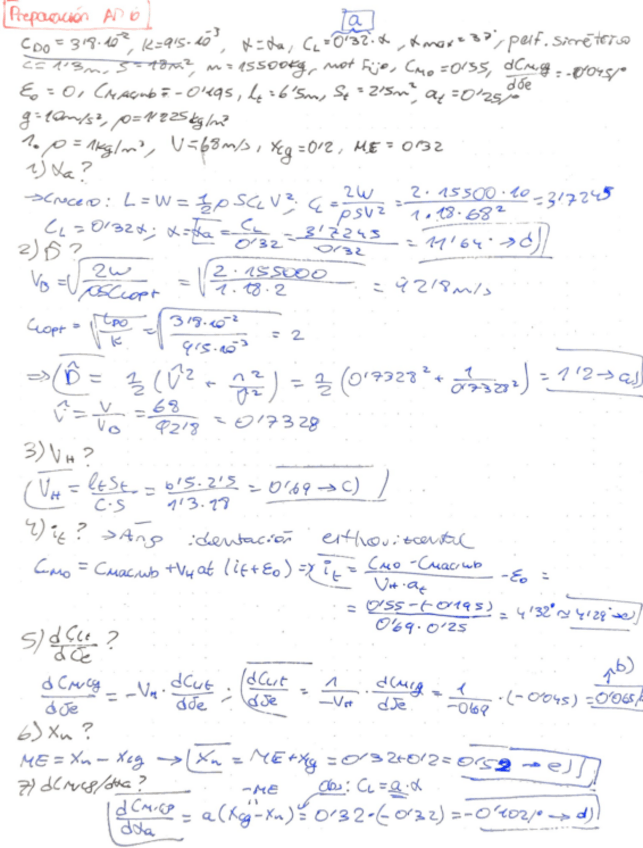 Preparación AP 6
a
C_D0 = 3'8·10⁻², K = 9'5·10⁻³, α = αa, C_L = 0'32·α, αmax = 32°, perf. simétrico
c = 1'3m, S = 18m², m = 15500kg, mot Fijo, C_M0 = 0'55, dC_Mcg/dδe = -0'045/°
ε₀ = 0, C_Macwb = -0'195, l_t = 6'5m, S_t = 2'5m², a_t = 0'25/°
g = 10m/s², ρ = 1'225kg/m³
1. ρ = 1kg/m³, V = 68m/s, x_cg = 0'2, ME = 0'32
1) αa?
→ Crucero: L = W = 1/2 ρSC_L V²; C_L = 2W/ρSV² = 2·15500·10/1·18·68² = 3'7245
C_L = 0'32α; α = αa = C_L/0'32 = 3'7245/0'32 = 11'64° → d)
2) D̂?
V_B = √(2W/ρSC_Lopt) = √(2·155000/1·18·2) = 92'8m/s
C_Lopt = √(C_D0/K) = √(3'8·10⁻²/9'5·10⁻³) = 2
⇒ D̂ = 1/2 (V̂² + n²/V̂²) = 1/2 (0'7328² + 1/0'7328²) = 1'2 → a)
V̂ = V/V_B = 68/92'8 = 0'7328
3) V_H?
V_H = l_t S_t/c·S = 6'5·2'5/1'3·18 = 0'69 → c)
4) i_t? → Áng
C_M0 = C_Macwb + V_H at (i_t + ε₀) ⇒ i_t = C_M0 - C_Macwb/V_H·a_t - ε₀ =
= 0'55 - (-0'195)/0'69·0'25 = 4'32° ≈ 4'29° → e)
5) dC_Lt/dδe?
dC_Mcg/dδe = -V_H · dC_Lt/dδe; dC_Lt/dδe = 1/-V_H · dC_Mcg/dδe = 1/-0'69 · (-0'045) = 0'065/° → b)
6) Xn?
ME = Xn - Xcg → Xn = ME + Xcg = 0'32 + 0'2 = 0'52 → e)
7) dC_Mcg/dαa? -ME obs: C_L = a·α
dC_Mcg/dαa = a(Xcg - Xn) = 0'32·(-0'32) = -0'102/° → d)